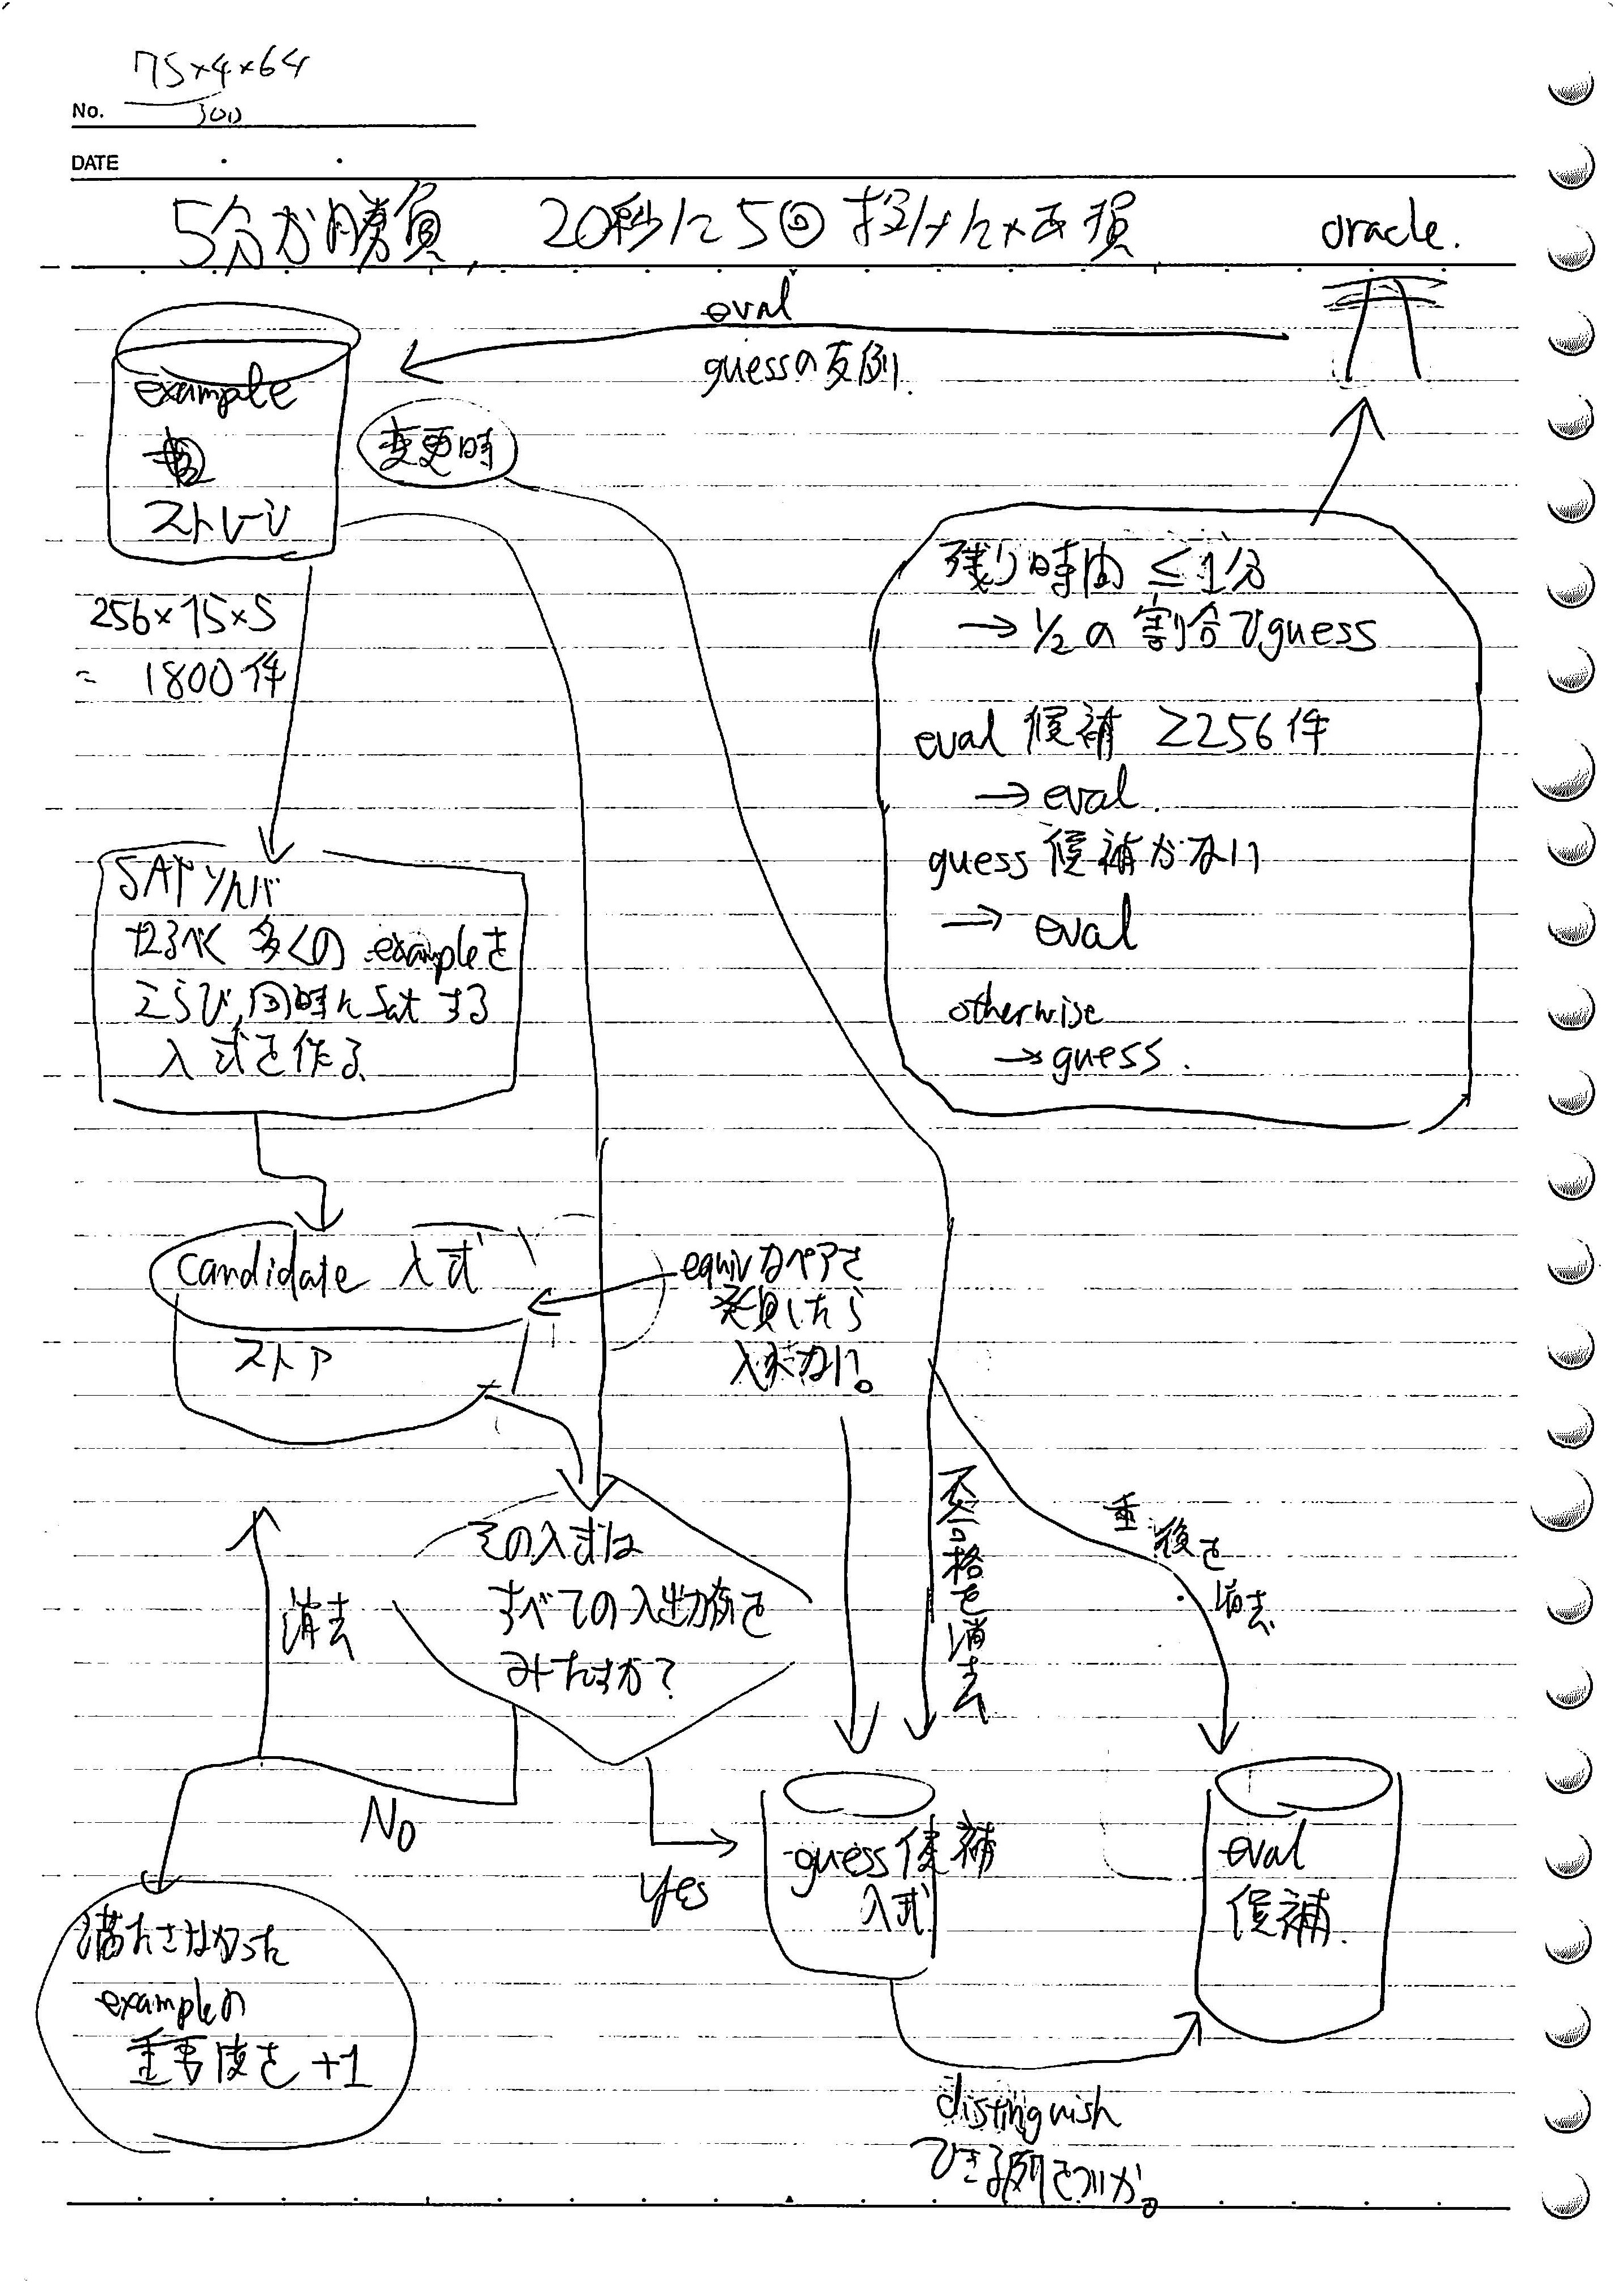 75×4×64
300
No.
DATE
5分が勝負、20秒に5回投げねば損
oracle.
eval
guessの反例
example
ストレージ
変更時
256×75×5
= 1800件
残り時間 ≤ 1分
→ 1/2の割合でguess
eval 候補 ≥256件
→ eval.
guess 候補がない
→ eval
otherwise
→ guess.
SATソルバ
なるべく多くの exampleを
えらび、同時にSatする
λ式を作る
candidate λ式
ストア
equivなペアを
発見したら
入れない。
そのλ式は
すべての入出力例を
みたすか?
消去
不合格を消去
重複を
消去
No
Yes
guess候補
λ式
eval
候補.
満たさなかった
exampleの
重要度を +1
distinguish
できる例をつくる。